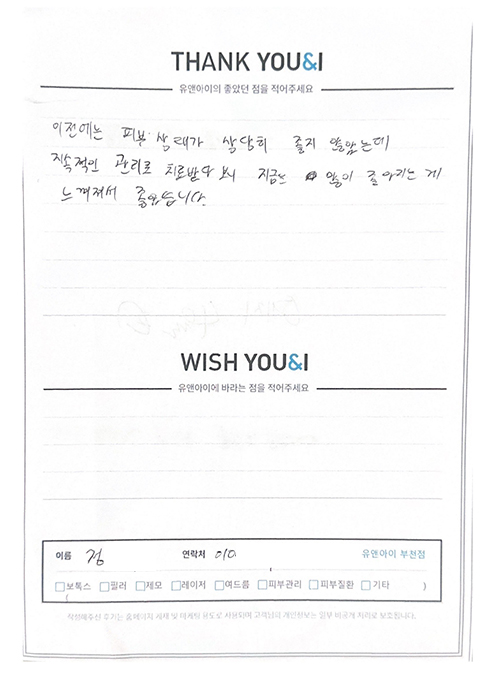 THANK YOU&I
유앤아이의 좋았던 점을 적어주세요
이전에는 피부 상태가 상당히 좋지 않았는데
지속적인 관리로 치료받다 보니 지금은 많이 좋아지는 게
느껴져서 좋았습니다.
WISH YOU&I
유앤아이에 바라는 점을 적어주세요
이름 정 연락처 010 유앤아이 부천점
보톡스 필러 제모 레이저 여드름 피부관리 피부질환 기타 )
(
작성해주신 후기는 홈페이지 게재 및 마케팅 용도로 사용되며 고객님의 개인정보는 일부 비공개 처리로 보호됩니다.